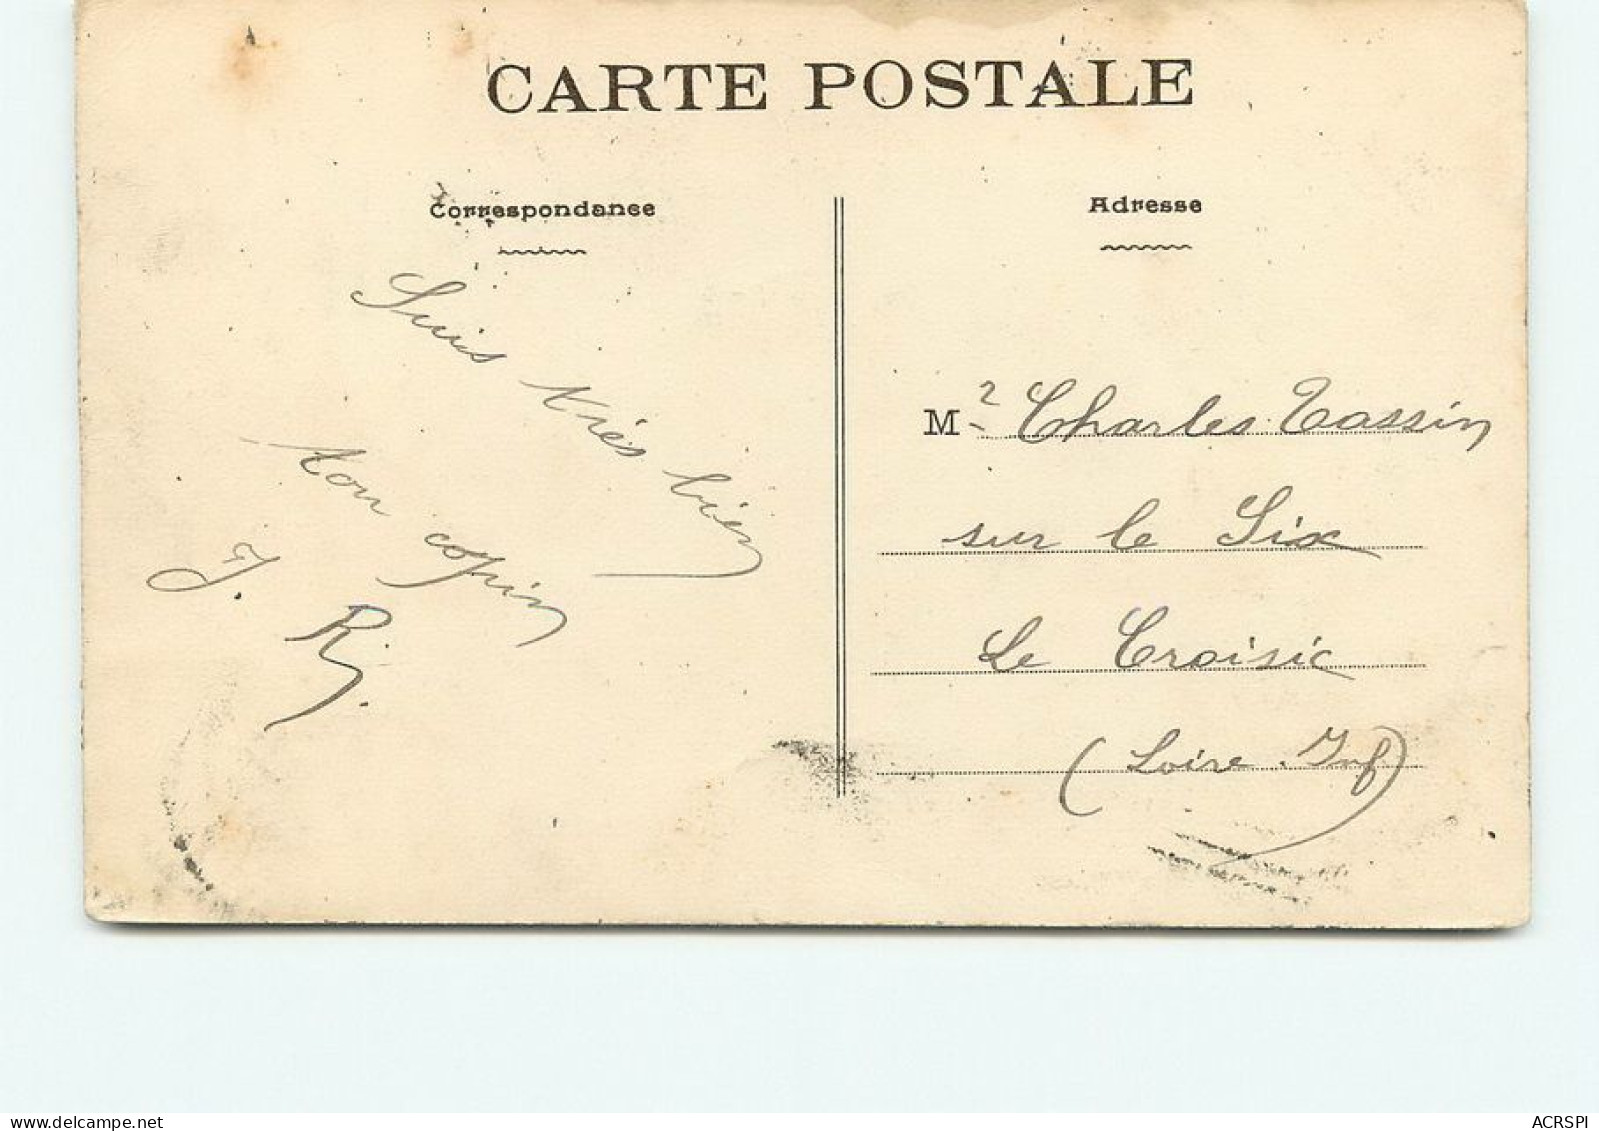 CARTE POSTALE
Correspondance
Suis très bien
ton copin
J. R.
Adresse
Mr Charles Tassin
sur le Six
Le Croisic
(Loire Inf)
delcampe.net
ACRSPI